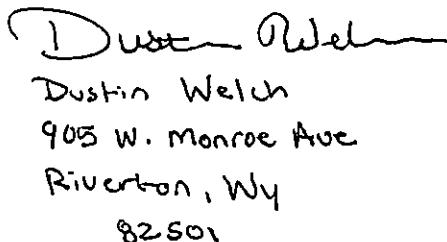 Dustin Welch
Dustin Welch
905 W. Monroe Ave
Riverton, Wy
82501